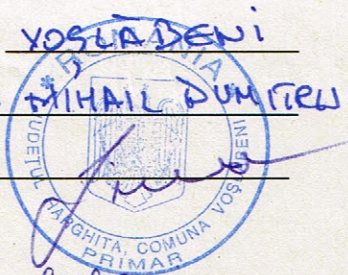 VOȘLĂBENI
MIHAIL DUMITRU
* ROMÂNIA *
JUDEȚUL HARGHITA, COMUNA VOȘLĂBENI
PRIMAR